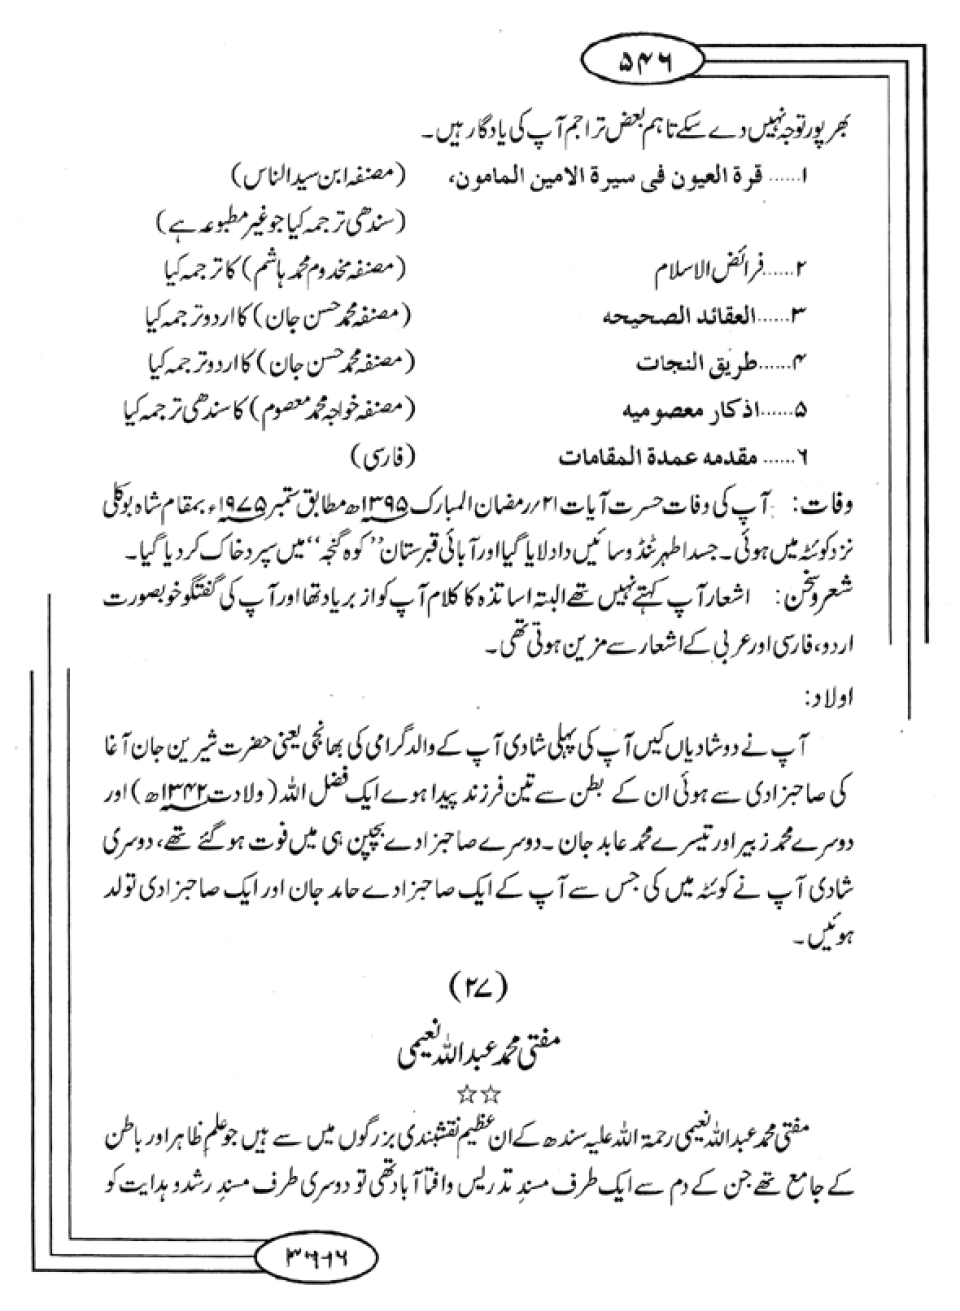 ۵۴۶
بھرپور توجہ نہیں دے سکے تاہم بعض تراجم آپ کی یادگار ہیں۔
۱...... قرة العیون فی سیرة الامین المامون، (مصنفہ ابن سید الناس)
(سندھی ترجمہ کیا جو غیر مطبوعہ ہے)
۲......فرائض الاسلام (مصنفہ مخدوم محمد ہاشم) کا ترجمہ کیا
۳......العقائد الصحیحہ (مصنفہ محمد حسن جان) کا اردو ترجمہ کیا
۴......طریق النجات (مصنفہ محمد حسن جان) کا اردو ترجمہ کیا
۵......اذکار معصومیہ (مصنفہ خواجہ محمد معصوم) کا سندھی ترجمہ کیا
۶...... مقدمہ عمدة المقامات (فارسی)
وفات: آپ کی وفات حسرت آیات ۲۱/رمضان المبارک ۱۳۹۵ھ مطابق ستمبر ۱۹۷۵ء بمقام شاہ بوکلی
نزد کوئٹہ میں ہوئی۔ جسد اطہر ٹنڈو سائیں داد لایا گیا اور آبائی قبرستان ’’کوہ گنجہ‘‘ میں سپرد خاک کر دیا گیا۔
شعر و سخن: اشعار آپ کہتے نہیں تھے البتہ اساتذہ کا کلام آپ کو ازبر یاد تھا اور آپ کی گفتگو خوبصورت
اردو، فارسی اور عربی کے اشعار سے مزین ہوتی تھی۔
اولاد:
آپ نے دو شادیاں کیں آپ کی پہلی شادی آپ کے والد گرامی کی بھانجی یعنی حضرت شیرین جان آغا
کی صاحبزادی سے ہوئی ان کے بطن سے تین فرزند پیدا ہوے ایک فضل اللہ (ولادت ۱۳۴۲ھ) اور
دوسرے محمد زبیر اور تیسرے محمد عابد جان ۔ دوسرے صاحبزادے بچپن ہی میں فوت ہو گئے تھے، دوسری
شادی آپ نے کوئٹہ میں کی جس سے آپ کے ایک صاحبزادے حامد جان اور ایک صاحبزادی تولد
ہوئیں۔
(۲۷)
مفتی محمد عبداللہ نعیمی
☆☆
مفتی محمد عبداللہ نعیمی رحمۃ اللہ علیہ سندھ کے ان عظیم نقشبندی بزرگوں میں سے ہیں جو علمِ ظاہر اور باطن
کے جامع تھے جن کے دم سے ایک طرف مسندِ تدریس و افتا آباد تھی تو دوسری طرف مسندِ رشد و ہدایت کو